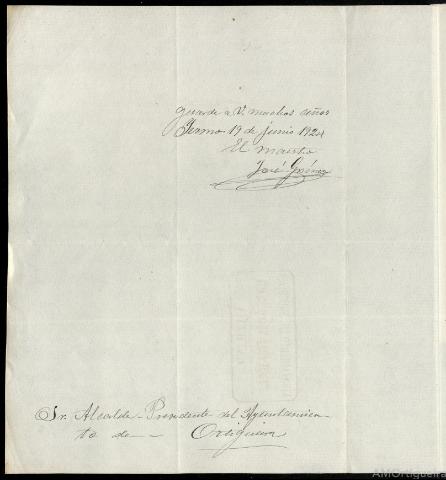 guarde a V. muchos años
Fermo 19 de junio 1924
El maestro
José
Sr. Alcalde-Presidente del Ayuntamien
to de — Ortigueira
AMOrtigueira